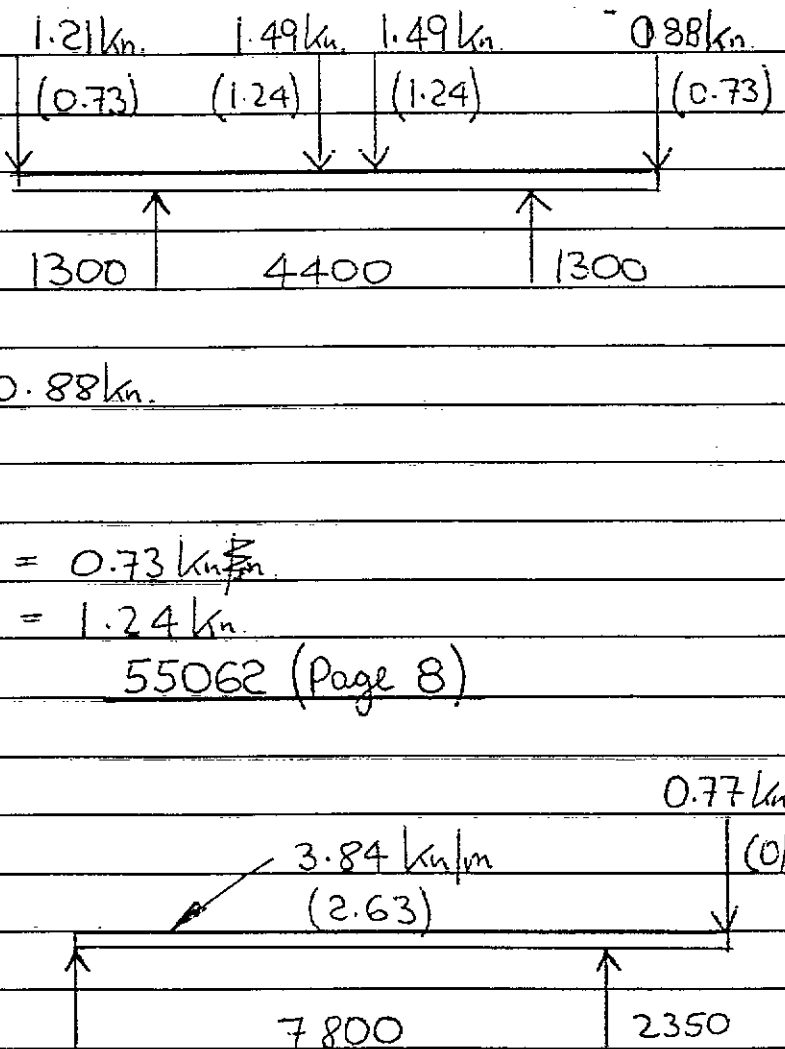 1.21kn. 1.49kn. 1.49kn. 0.88kn.
(0.73) (1.24) (1.24) (0.73)
1300 4400 1300
0.88kn.
= 0.73 kn
= 1.24 kn.
55062 (Page 8)
0.77 kn
3.84 kn/m (0/
(2.63)
7800 2350